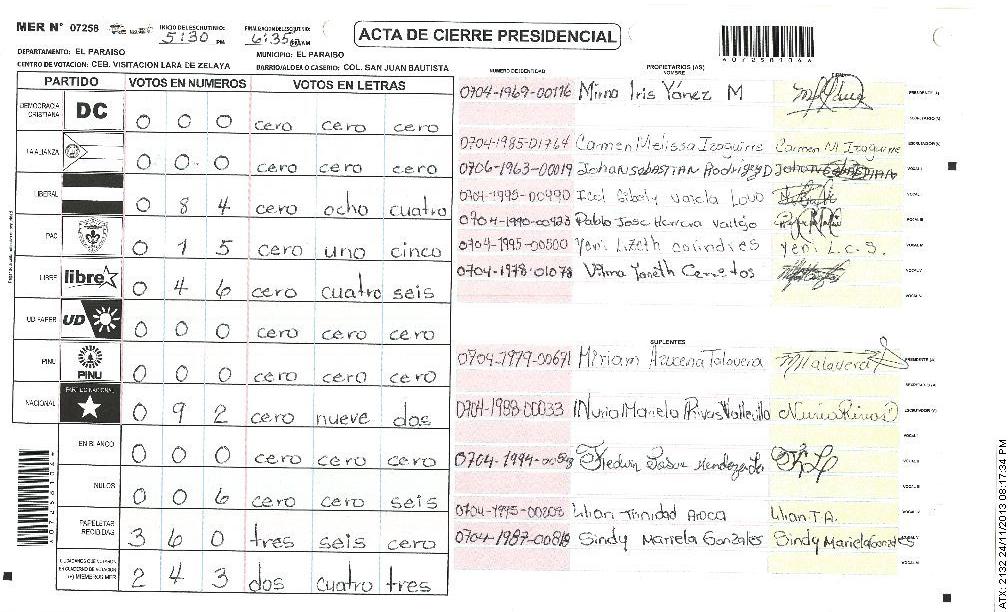 MER N° 07258 INICIO DEL ESCRUTINIO: 5:30 PM FINALIZACION DEL ESCRUTINIO: 6:35 PM/AM
ACTA DE CIERRE PRESIDENCIAL
DEPARTAMENTO: EL PARAISO MUNICIPIO: EL PARAISO
CENTRO DE VOTACION: CEB. VISITACION LARA DE ZELAYA BARRIO/ALDEA O CASERIO: COL. SAN JUAN BAUTISTA
PARTIDO VOTOS EN NUMEROS VOTOS EN LETRAS
DEMOCRACIA CRISTIANA DC 0 0 0 cero cero cero
LA ALIANZA 0 0 0 cero cero cero
LIBERAL 0 8 4 cero ocho cuatro
PAC 0 1 5 cero uno cinco
LIBRE libre 0 4 6 cero cuatro seis
UD FAPER UD 0 0 0 cero cero cero
PINU PINU 0 0 0 cero cero cero
NACIONAL PARTIDO NACIONAL 0 9 2 cero nueve dos
EN BLANCO 0 0 0 cero cero cero
NULOS 0 0 6 cero cero seis
PAPELETAS RECIBIDAS 3 6 0 tres seis cero
CIUDADANOS QUE VOTARON EN CUADERNO DE VOTACION (+) MIEMBROS MER 2 4 3 dos cuatro tres
NUMERO DE IDENTIDAD PROPIETARIOS (AS) NOMBRE
0704-1969-00176 Mirna Iris Yánez M PRESIDENTE (A)
SECRETARIO (A)
0704-1985-01764 Carmen Melissa Izaguirre Carmen M Izaguirre ESCRUTADOR (A)
0706-1963-00019 Johansebastian Rodriguez D VOCAL I
0704-1995-00990 VOCAL II
0704-1990-00423 Pablo Jose Herrera Vallejo VOCAL III
0704-1995-00500 Yeni Lizeth Yeni L.C.S. VOCAL IV
0704-1978-01078 Vilma Janeth VOCAL V
VOCAL VI
SUPLENTES
0704-1979-00671 Miriam Azucena Talavera M Talavera PRESIDENTE (A)
SECRETARIO (A)
0704-1988-00033 Nuria Mariela Rivas Nuria Rivas ESCRUTADOR (A)
VOCAL I
0704-1994-00598 VOCAL II
VOCAL III
0704-1995-00208 Lilian Trinidad Lilian T.A. VOCAL IV
0704-1987-00819 Sindy Mariela Gonzales Sindy Mariela Gonzales VOCAL V
VOCAL VI
4072581066
ATX: 2132 24/11/2013 08:17:34 PM